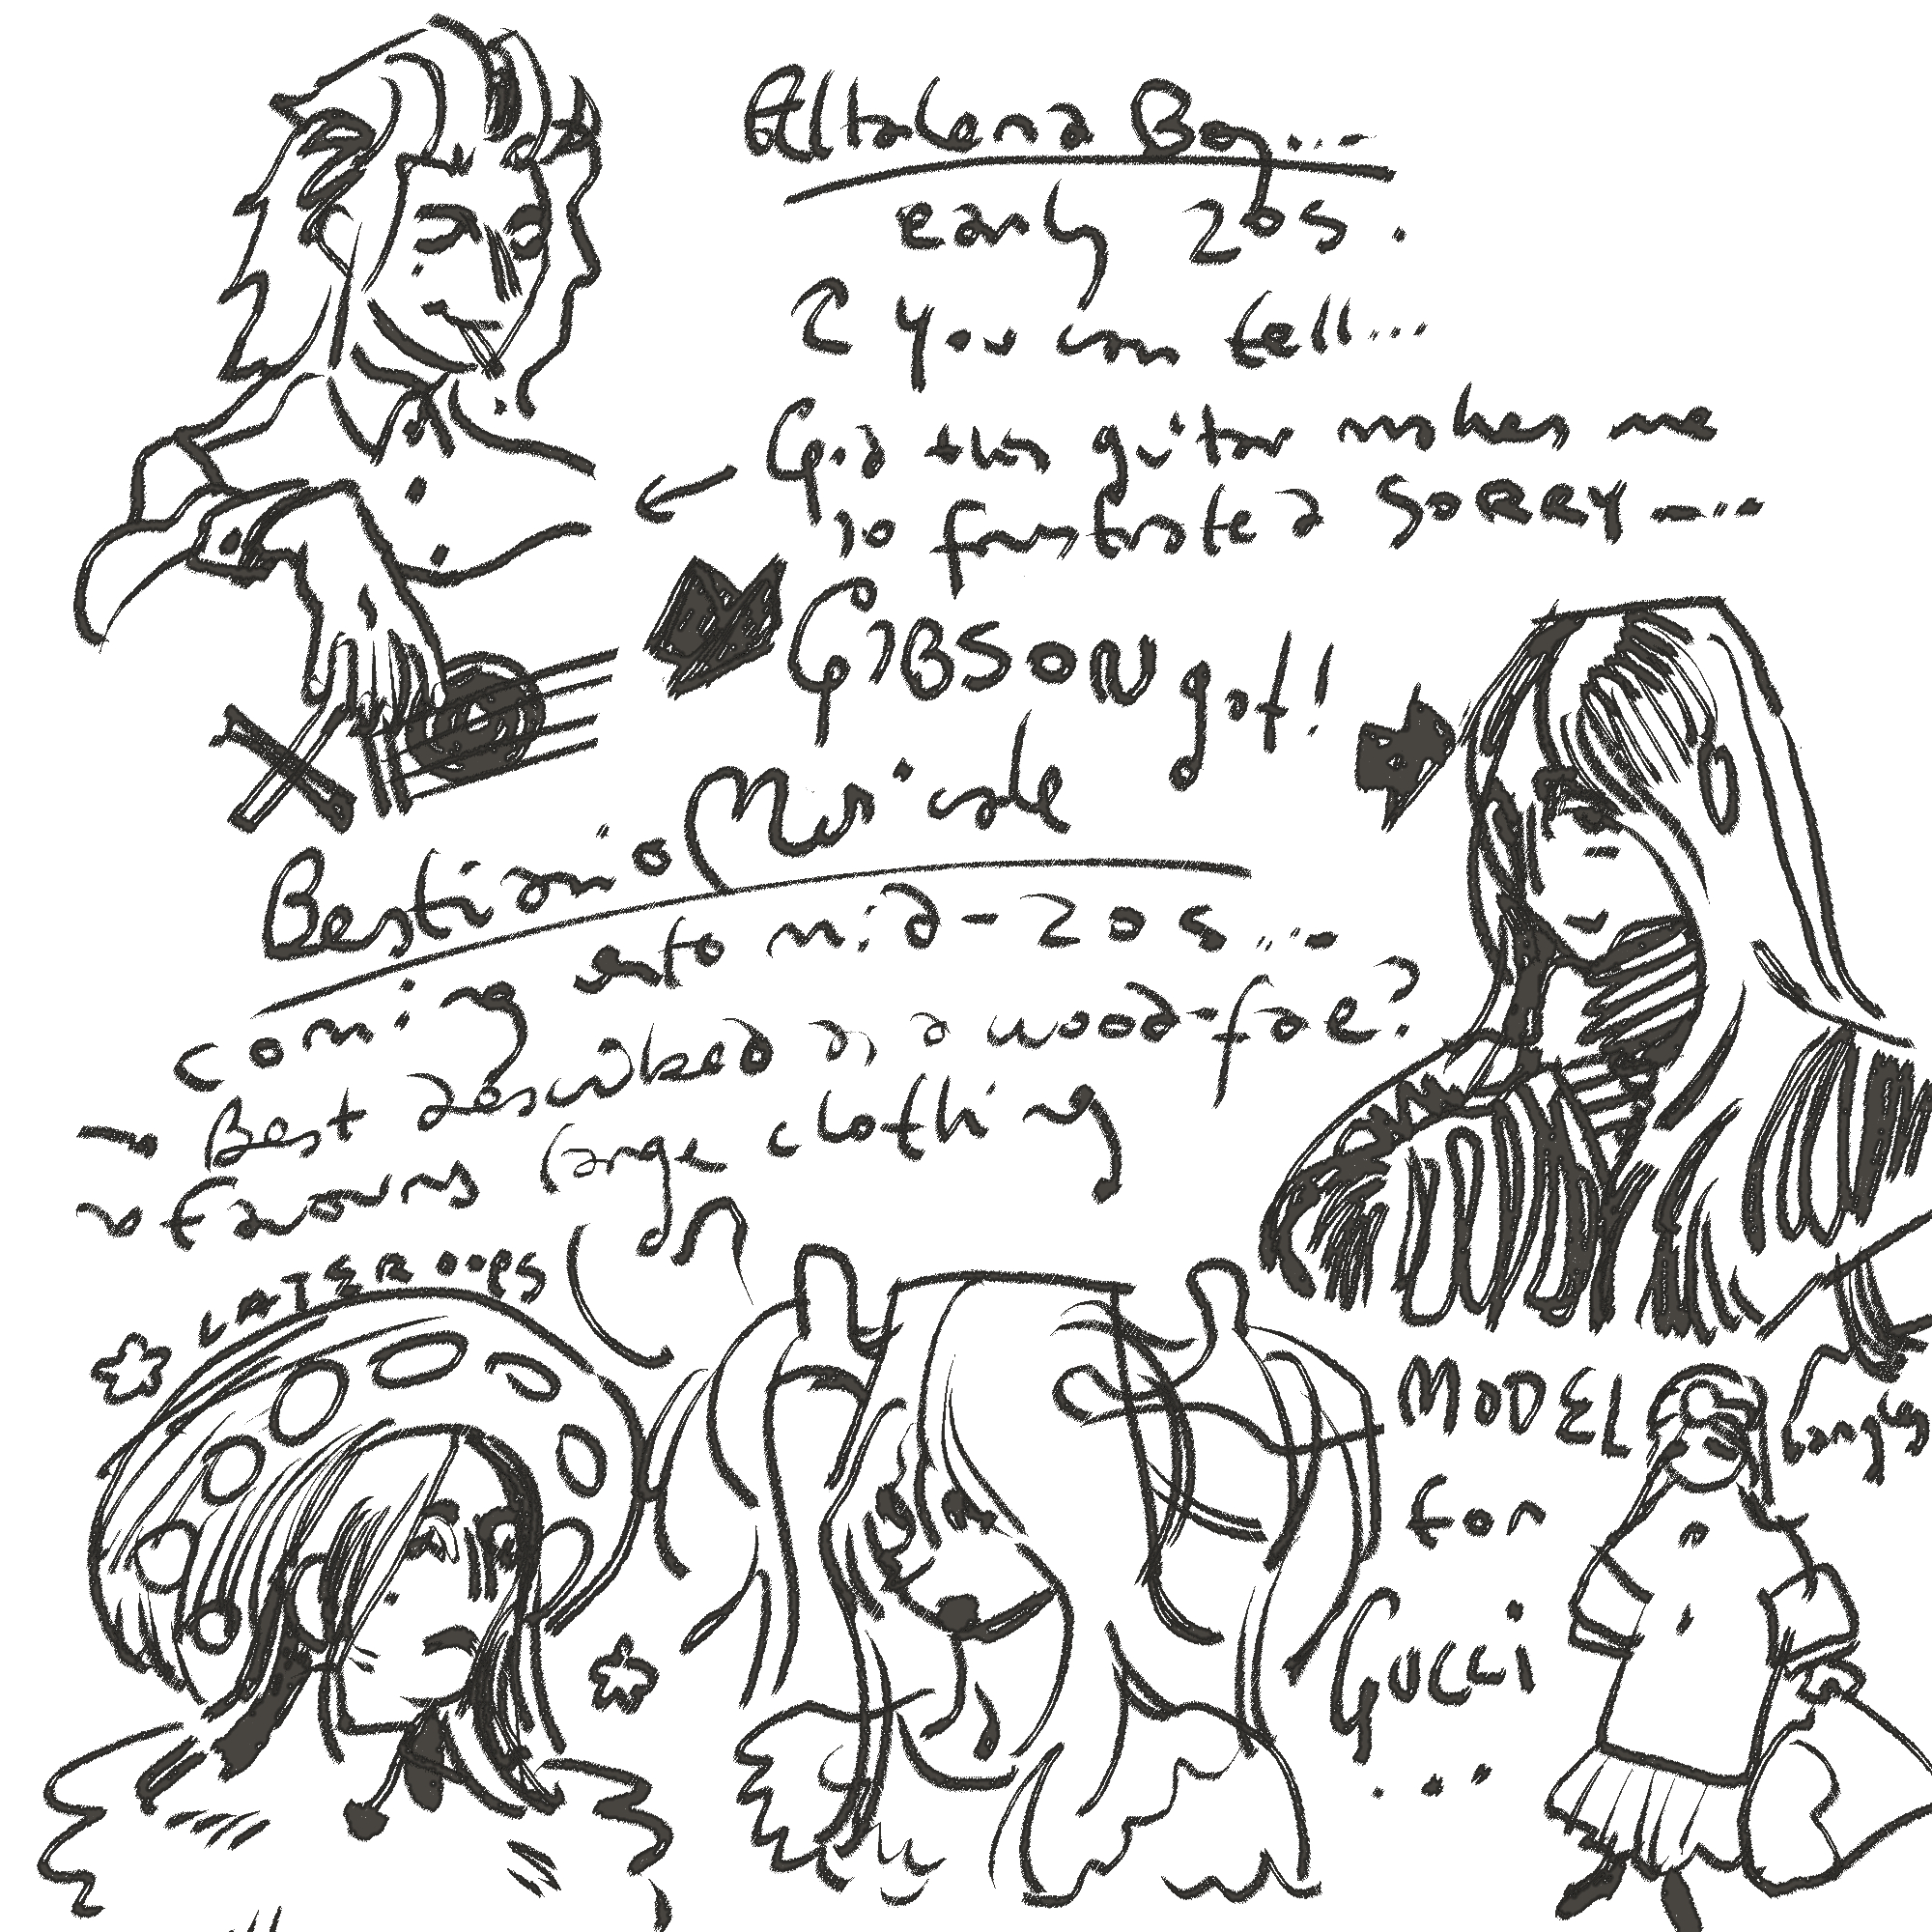 Altalena Boy...
early 20s.
? you can tell...
God this guitar makes me
so frustrated SORRY ---
GIBSON got!
Bestiario Musicale
coming into mid-20s...
Best described as a wood-fae?
favours large clothing
LATER OOPS
MODEL
for
Gucci
...